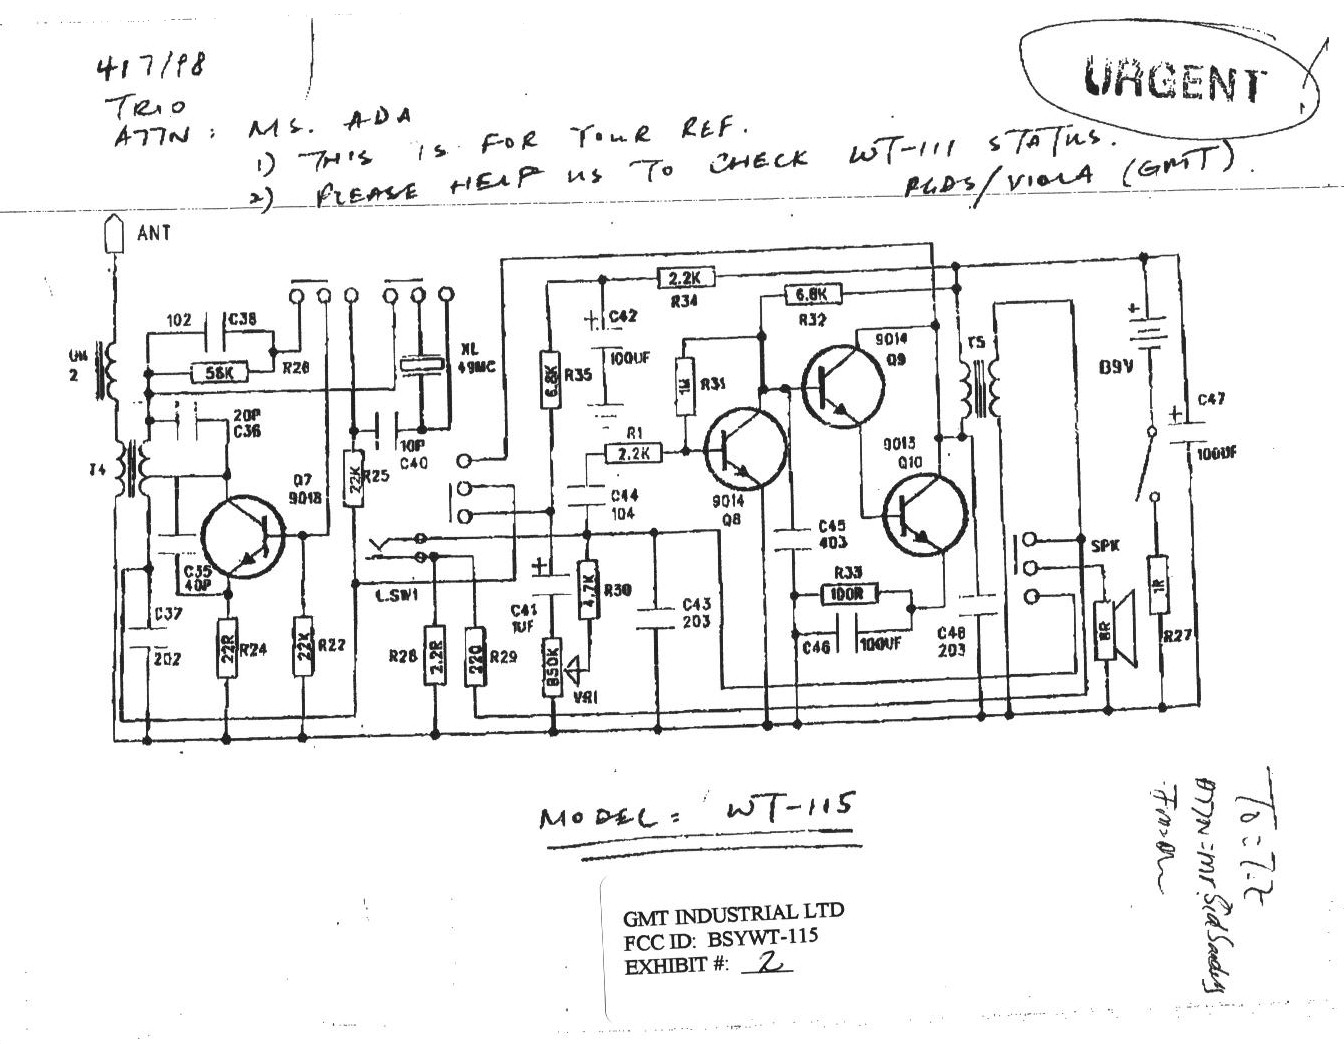 417/98
URGENT
TRIO
ATTN: MS. ADA
1) THIS IS FOR YOUR REF.
2) PLEASE HELP US TO CHECK WT-111 STATUS.
RGDS/VIOLA (GMT).
ANT
102 C38
56K R26
20P
C36
2
T4
Q7
9018
C35
40P
C37
202
22R R24
22K R22
22K R25
XL
49MC
10P
C40
L.SW1
R28 2.2R
220 R29
C42
100UF
6.8K R35
C41
1UF
B50K
VR1
4.7K R30
C44
104
R1
2.2K
2.2K
R34
1M R31
6.8K
R32
9014
Q8
9014
Q9
9013
Q10
C43
203
C45
403
R33
100R
C46 100UF
C48
203
T5
SPK
8R
B9V
C47
100UF
1R
R27
MODEL: WT-115
GMT INDUSTRIAL LTD
FCC ID: BSYWT-115
EXHIBIT #: 2
ATTN = mr. Sid Sanders